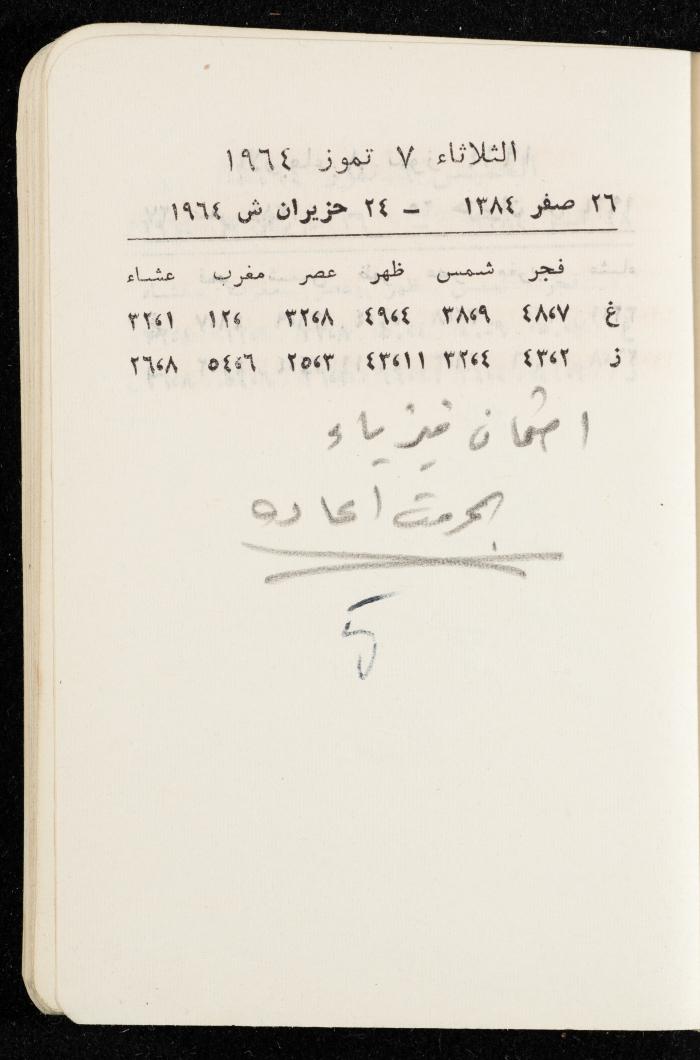 الثلاثاء ٧ تموز ١٩٦٤
٢٦ صفر ١٣٨٤ – ٢٤ حزيران ش ١٩٦٤
فجر شمس ظهر عصر مغرب عشاء
غ ٤٨،٧ ٣٨،٩ ٤٩،٤ ٣٢،٨ ١٢، ٣٢،١
ز ٤٣،٢ ٣٢،٤ ٤٣،١١ ٢٥،٣ ٥٤،٦ ٢٦،٨
امتحان فيزياء
اعاده
5